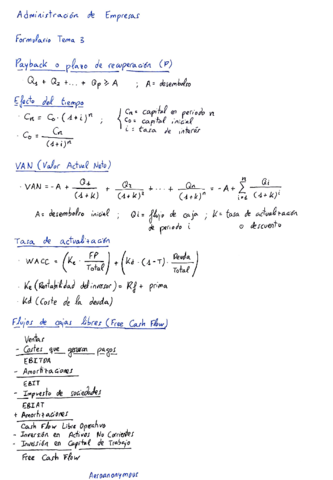 Administración de Empresas
Formulario Tema 3
Payback o plazo de recuperación (P)
Q₁ + Q₂ + ... + Qp ≥ A ; A = desembolso
Efecto del tiempo
· Cn = Co · (1+i)ⁿ ; { Cn = capital en periodo n
Co = capital inicial
i = tasa de interés
· Co = Cn / (1+i)ⁿ
VAN (Valor Actual Neto)
· VAN = -A + Q₁/(1+k) + Q₂/(1+k)² + ... + Qn/(1+k)ⁿ = -A + Σ Qi/(1+k)ⁱ
A = desembolso inicial ; Qi = flujo de caja ; K = tasa de actualización
de periodo i o descuento
Tasa de actualización
· WACC = (Ke · FP/Total) + (Kd · (1-T) · Deuda/Total)
· Ke (Rentabilidad del inversor) = Rf + prima
· Kd (Coste de la deuda)
Flujos de cajas libres (Free Cash Flow)
Ventas
- Costes que generan pagos
EBITDA
- Amortizaciones
EBIT
- Impuesto de sociedades
EBIAT
+ Amortizaciones
Cash Flow Libre Operativo
- Inversión en Activos No Corrientes
- Inversión en Capital de Trabajo
Free Cash Flow
Aeroanonymous